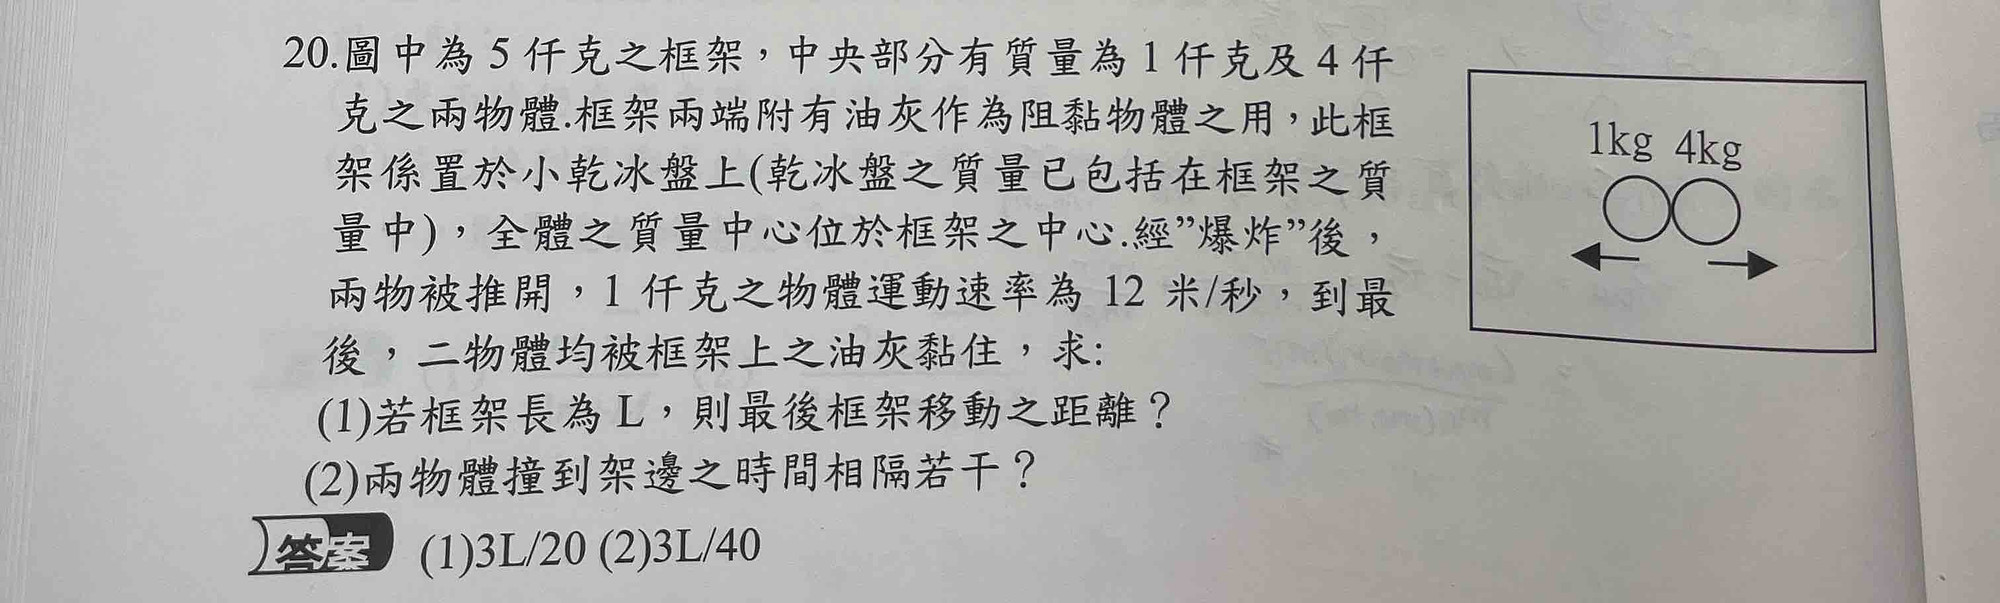 20.圖中為 5 仟克之框架，中央部分有質量為 1 仟克及 4 仟
克之兩物體.框架兩端附有油灰作為阻黏物體之用，此框
架係置於小乾冰盤上(乾冰盤之質量已包括在框架之質
量中)，全體之質量中心位於框架之中心.經”爆炸”後，
兩物被推開，1 仟克之物體運動速率為 12 米/秒，到最
後，二物體均被框架上之油灰黏住，求:
(1)若框架長為 L，則最後框架移動之距離？
(2)兩物體撞到架邊之時間相隔若干？
答案 (1)3L/20 (2)3L/40
1kg 4kg